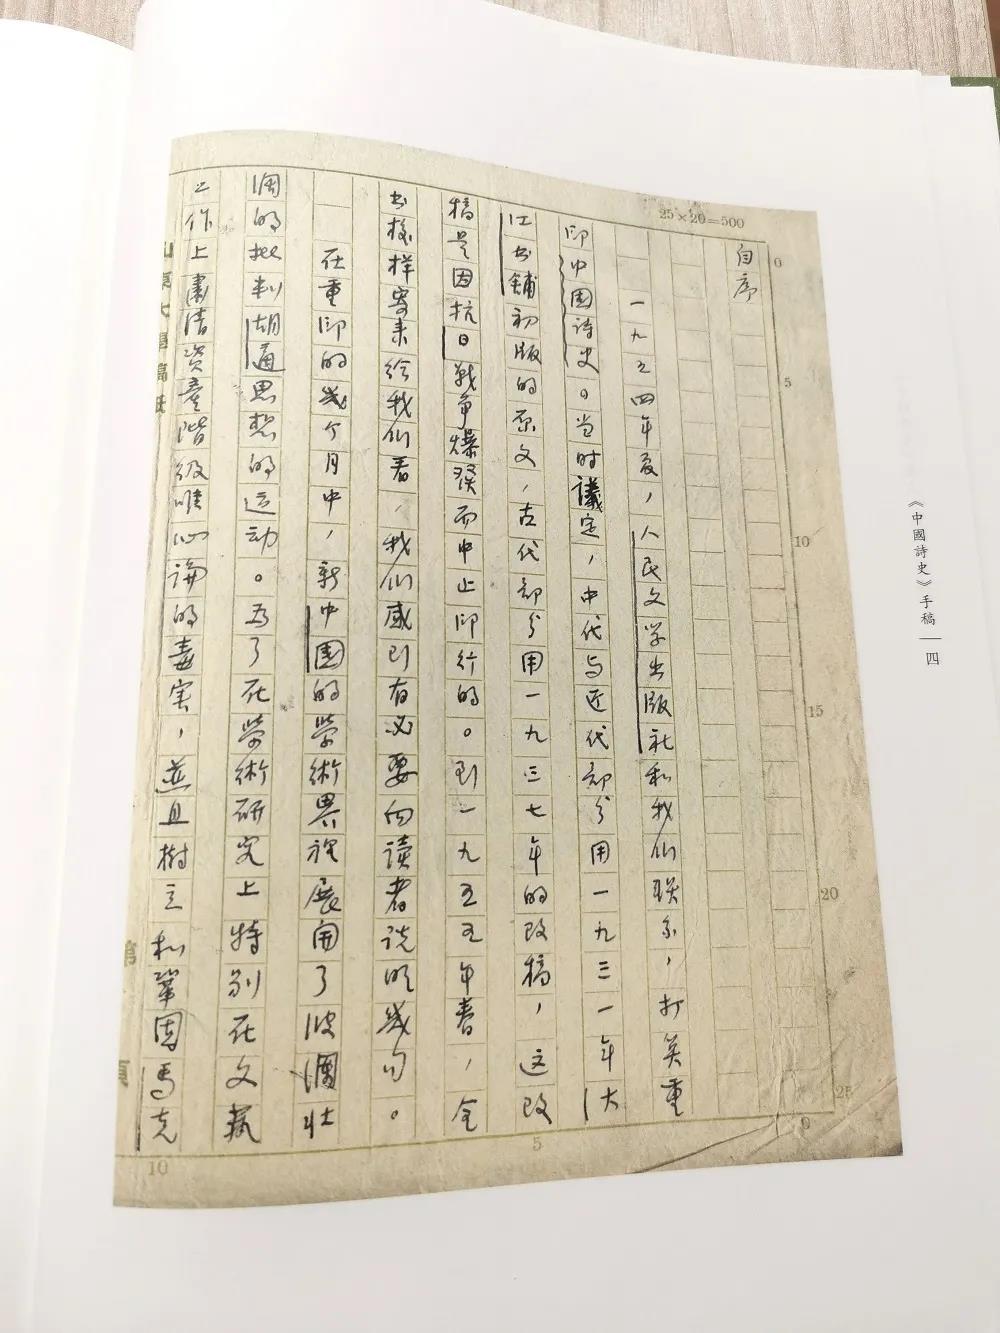 25×20=500
自序
一九五四年夏，人民文学出版社和我们联系，打算重
印中国诗史。当时議定，中代与近代部分用一九三一年大
江书铺初版的原文，古代部分用一九三七年的改稿，这改
稿是因抗日战争爆發而中止印行的。到一九五五年春，全
书校样寄来给我们看，我们感到有必要向读者说明幾句。
在重印的幾个月中，新中国的学術界裡展开了波瀾壮
阔的批判胡適思想的运动。为了在学術研究上特别在文藝
工作上肃清资產階级唯心論的毒害，並且樹立和鞏固馬克
0
5
10
15
20
25
0
5
10
山東大學稿紙
第
頁
《中國詩史》手稿
四